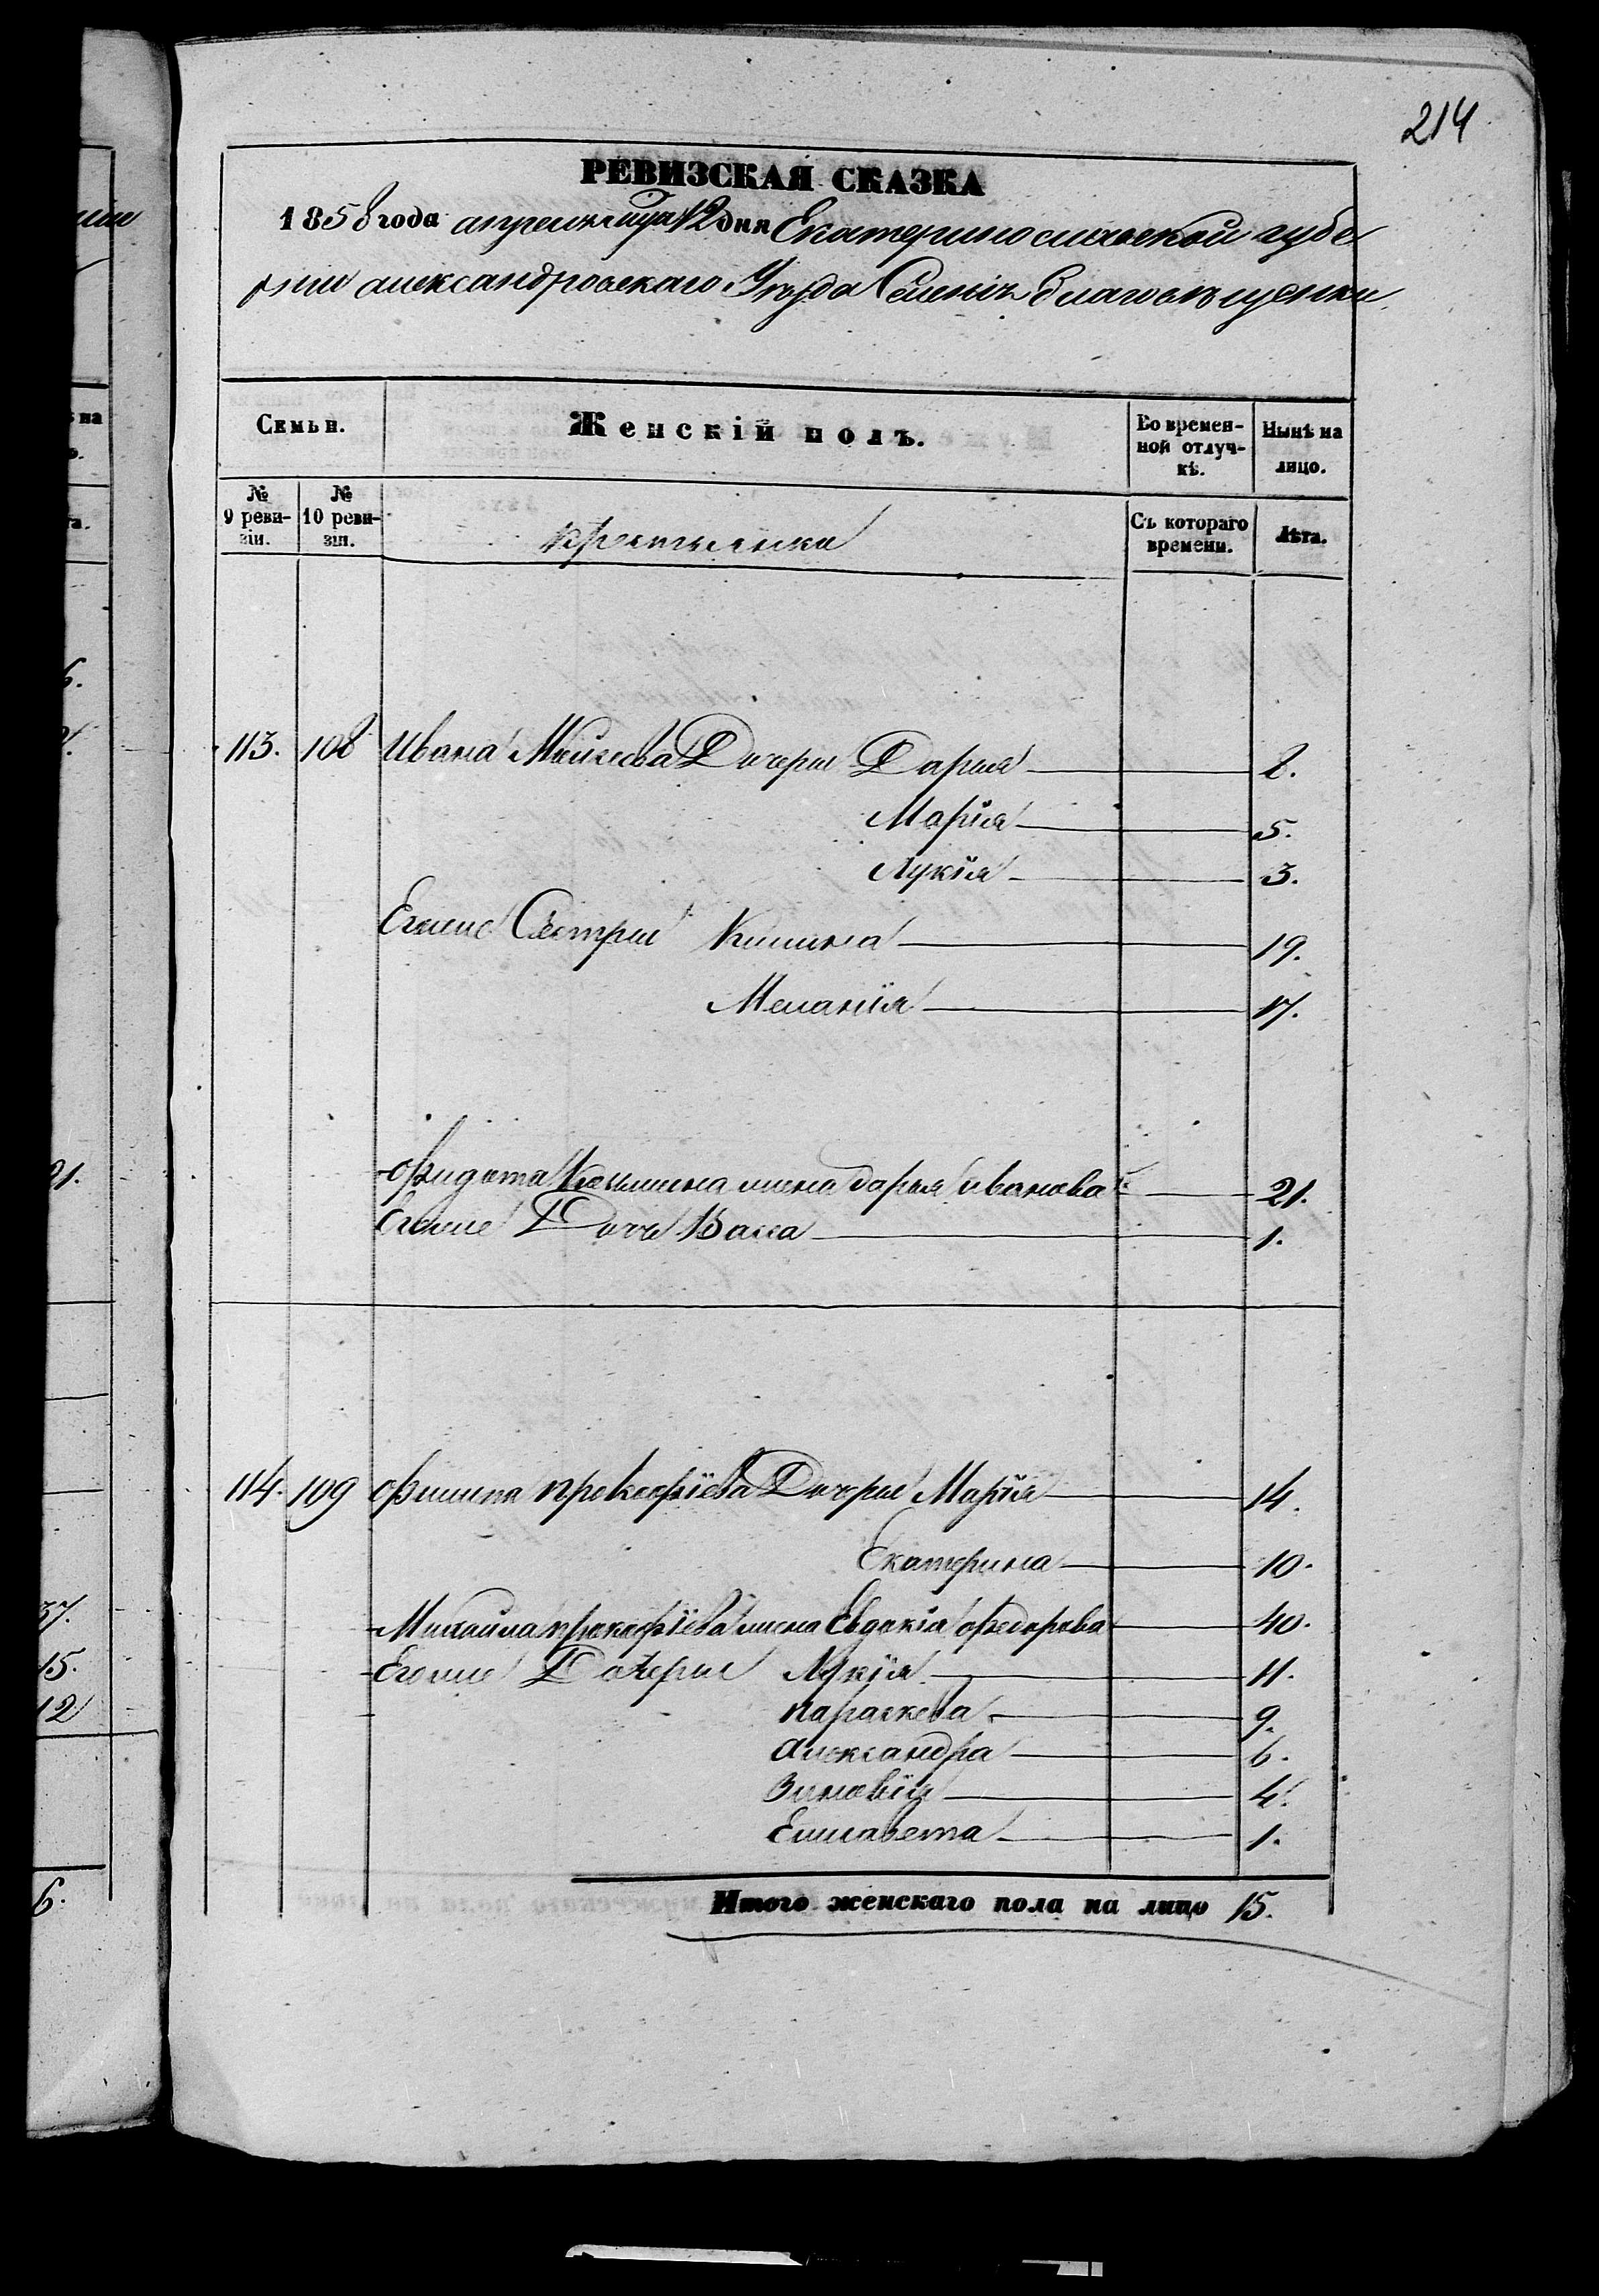 214
РЕВИЗСКАЯ СКАЗКА
1858 года апреля месяца 12 дня Екатеринославской губе
рніи александровскаго Уезда Селенія благовѣщенки
Семьи.
Женскій полъ.
Во временной отлучкѣ.
Нынѣ на лицо.
№ 9 ревизіи.
№ 10 ревизіи.
крестьянка
Съ котораго времени.
Лѣта.
113. 108 Ивана Мойсеева Дочери Дарья 8.
Марія 5.
Лукія 3.
Егоже Сестры 19.
Меланія 17.
Федота жена дарья иванова 21.
Егоже Дочь Васса 1.
114. 109 Филипа прокофіева Дочери Марія 14.
Екатерина 10.
Михайла прокофіева жена Евдокія федорова 40.
Егоже Дочери Лукія 11.
параскева 9.
Александра 6.
Зиновія 4.
Елисавета 1.
Итого женскаго пола на лицо 15.